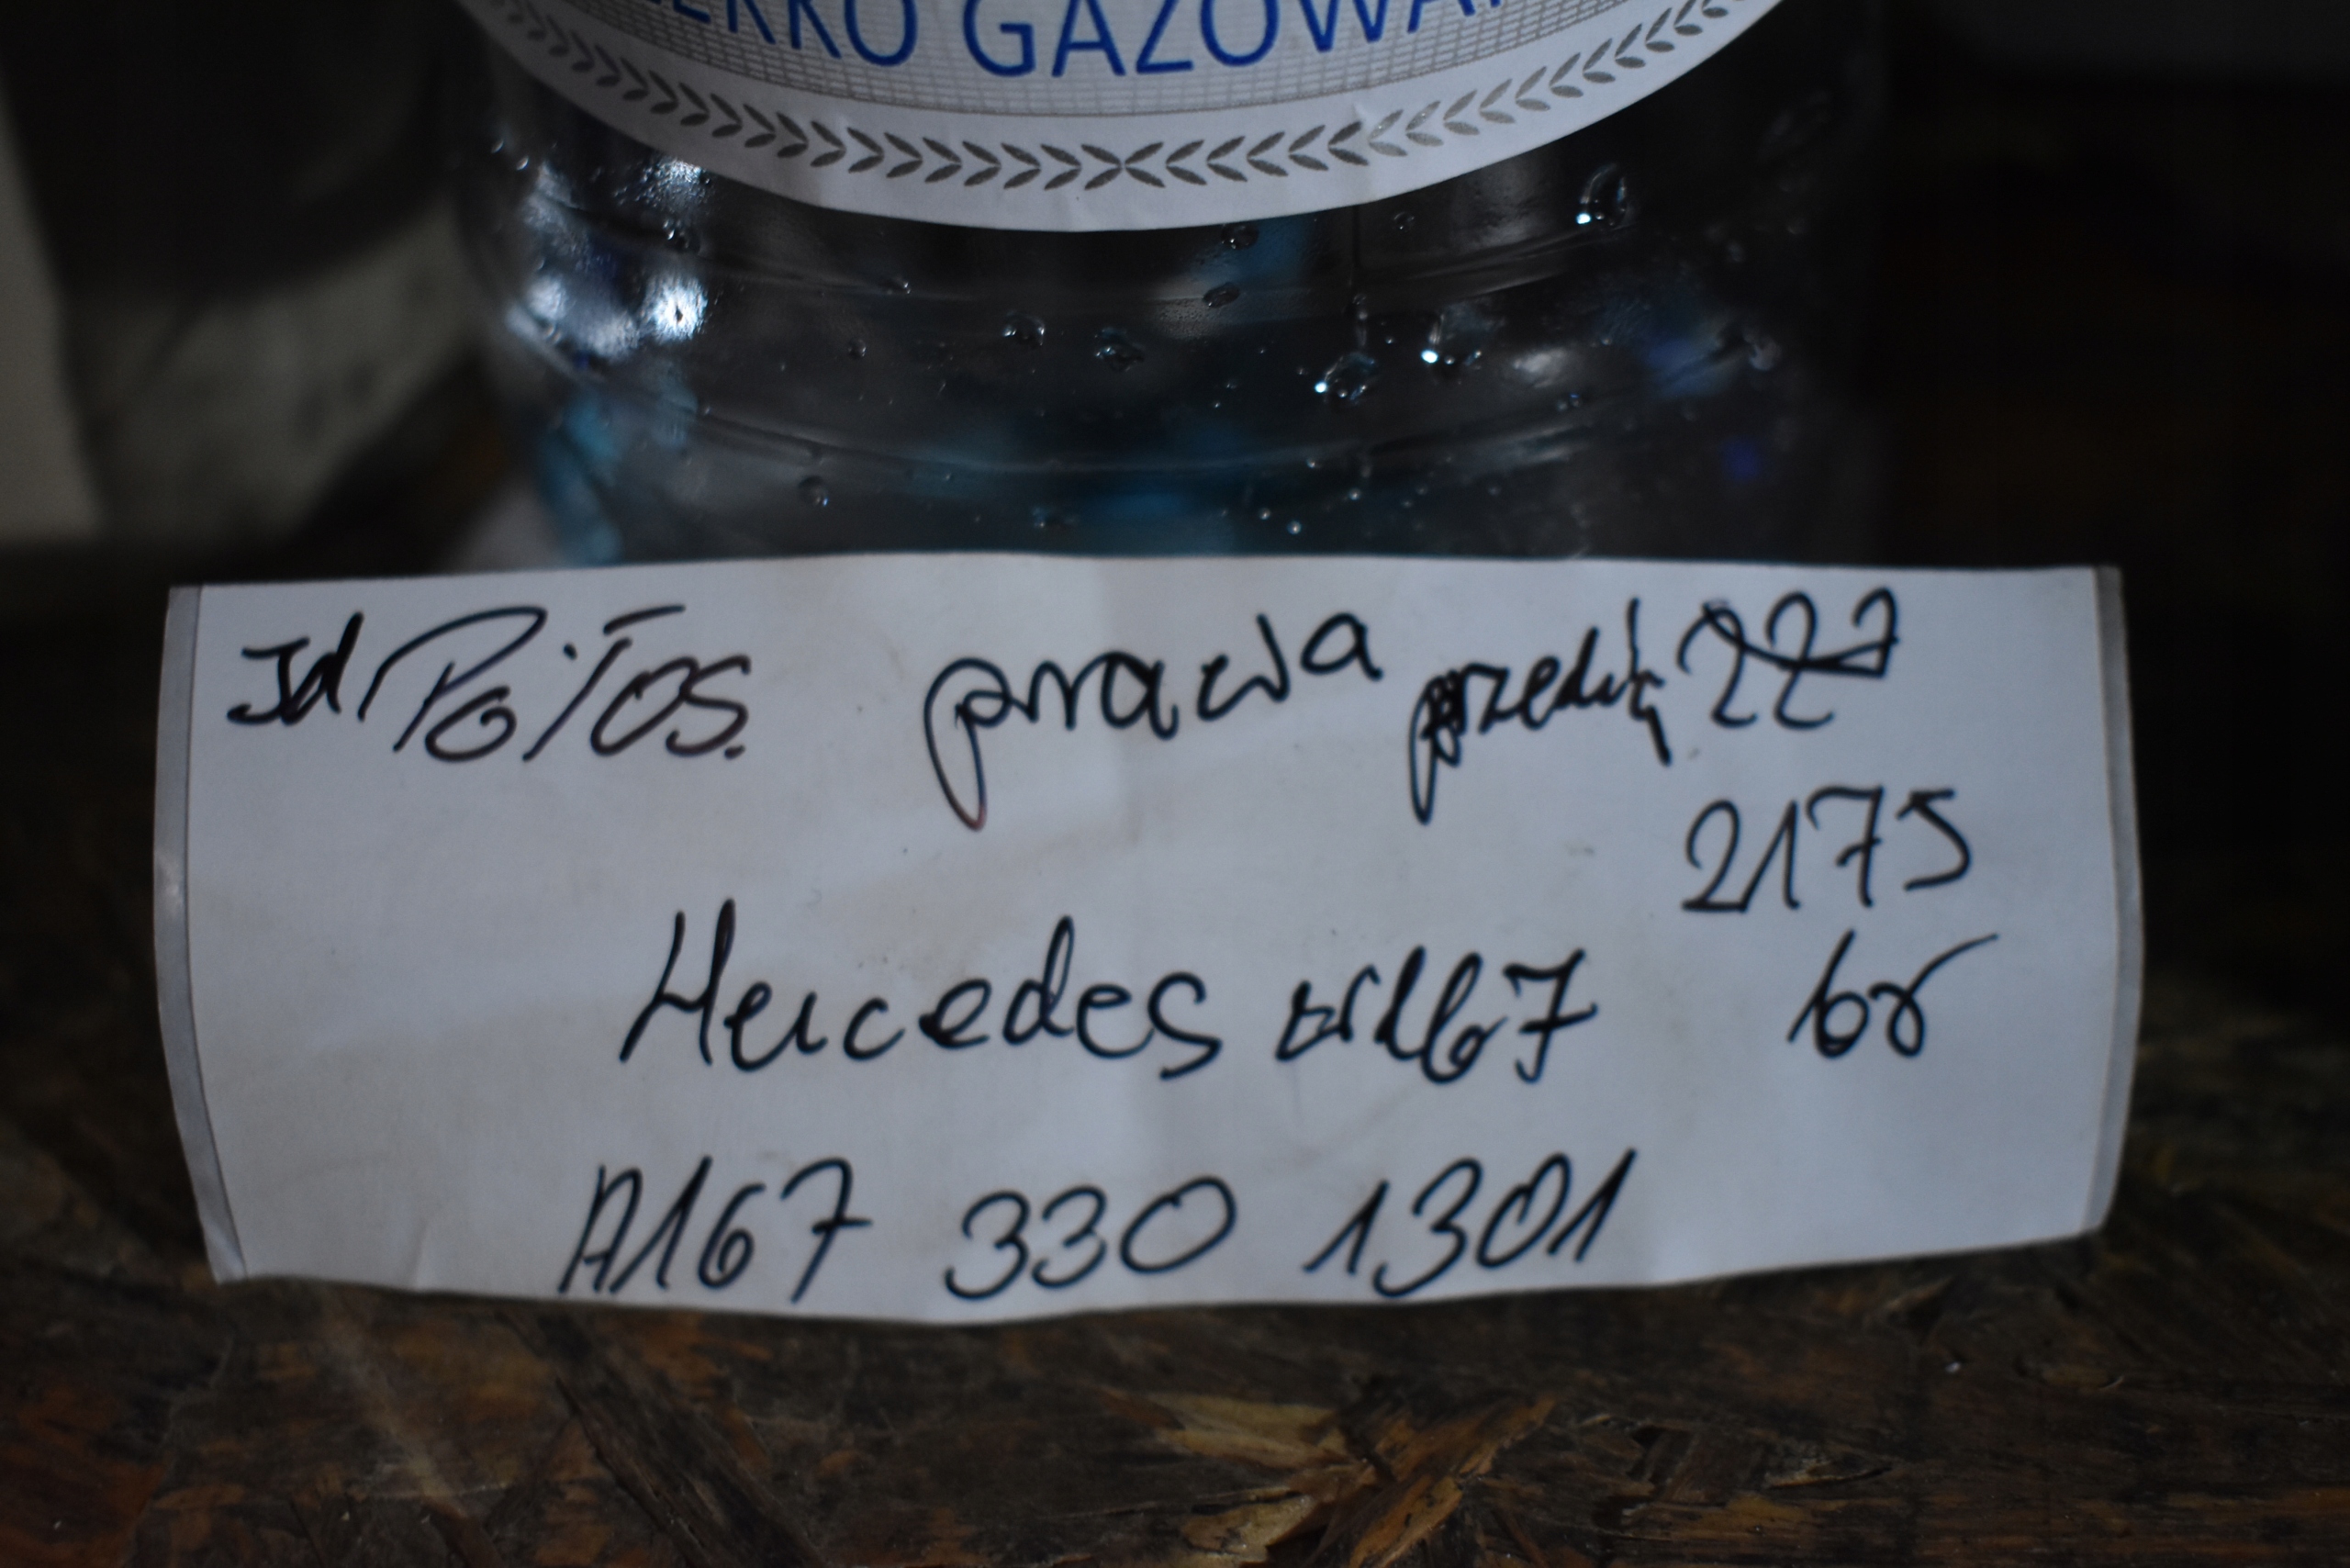 EKKO GAZOWA
Jd Półoś. prawa przednia
2175
Mercedes w167 br
A167 330 1301